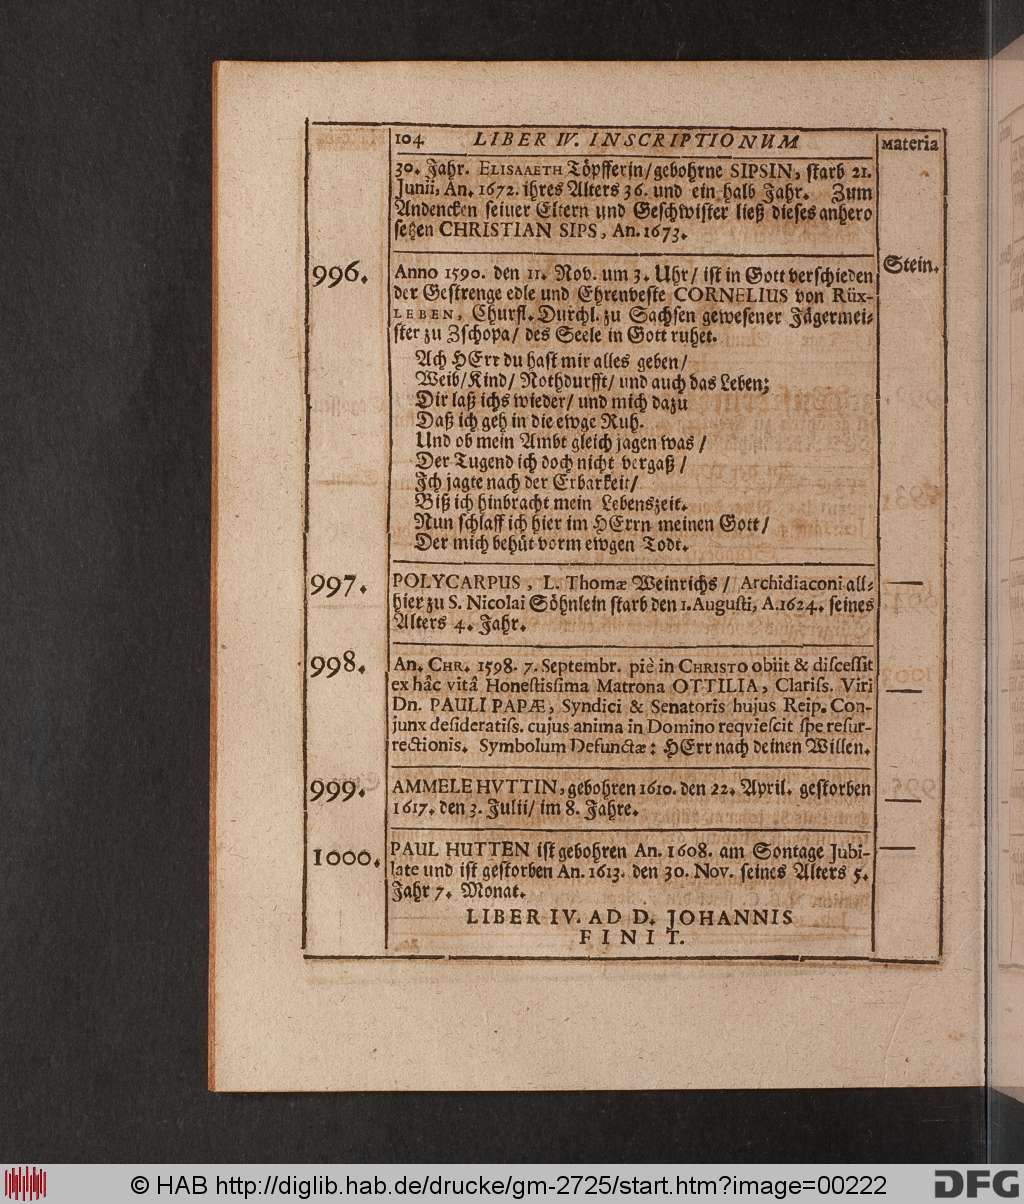 104 LIBER IV. INSCRIPTIONUM Materia
30. Jahr. ELISAAETH Töpfferin/gebohrne SIPSIN, starb 21.
Junii, An. 1672. ihres Alters 36. und ein halb Jahr. Zum
Andencken seiner Eltern und Geschwister ließ dieses anhero
setzen CHRISTIAN SIPS, An. 1673.
996. Anno 1590. den 11. Nov. um 3. Uhr/ ist in Gott verschieden Stein.
der Gestrenge edle und Ehrenveste CORNELIUS von Rüx-
LEBEN, Churfl. Durchl. zu Sachsen gewesener Jägermei-
ster zu Zschopa/ des Seele in Gott ruhet.
Ach HErr du hast mir alles geben/
Weib/Kind/ Nothdurfft/ und auch das Leben;
Dir laß ichs wieder/ und mich dazu
Daß ich geh in die ewge Ruh.
Und ob mein Ambt gleich jagen was/
Der Tugend ich doch nicht vergaß/
Ich jagte nach der Erbarkeit/
Biß ich hinbracht mein Lebenszeit.
Nun schlaff ich hier im HErrn meinen Gott/
Der mich behüt vorm ewgen Todt.
997. POLYCARPUS, L. Thomæ Weinrichs/ Archidiaconi all-
hier zu S. Nicolai Söhnlein starb den 1. Augusti, A. 1624. seines
Alters 4. Jahr.
998. An. CHR. 1598. 7. Septembr. piè in CHRISTO obiit & discessit
ex hâc vitâ Honestissima Matrona OTTILIA, Clariss. Viri
Dn. PAULI PAPÆ, Syndici & Senatoris hujus Reip. Con-
junx desideratiss. cujus anima in Domino reqviescit spe resur-
rectionis. Symbolum Defunctæ: HErr nach deinen Willen.
999. AMMELE HVTTIN, gebohren 1610. den 22. April. gestorben
1617. den 3. Julii/ im 8. Jahre.
1000. PAUL HUTTEN ist gebohren An. 1608. am Sontage Jubi-
late und ist gestorben An. 1613. den 30. Nov. seines Alters 5.
Jahr 7. Monat.
LIBER IV. AD D. JOHANNIS
FINIT.
© HAB http://diglib.hab.de/drucke/gm-2725/start.htm?image=00222 DFG